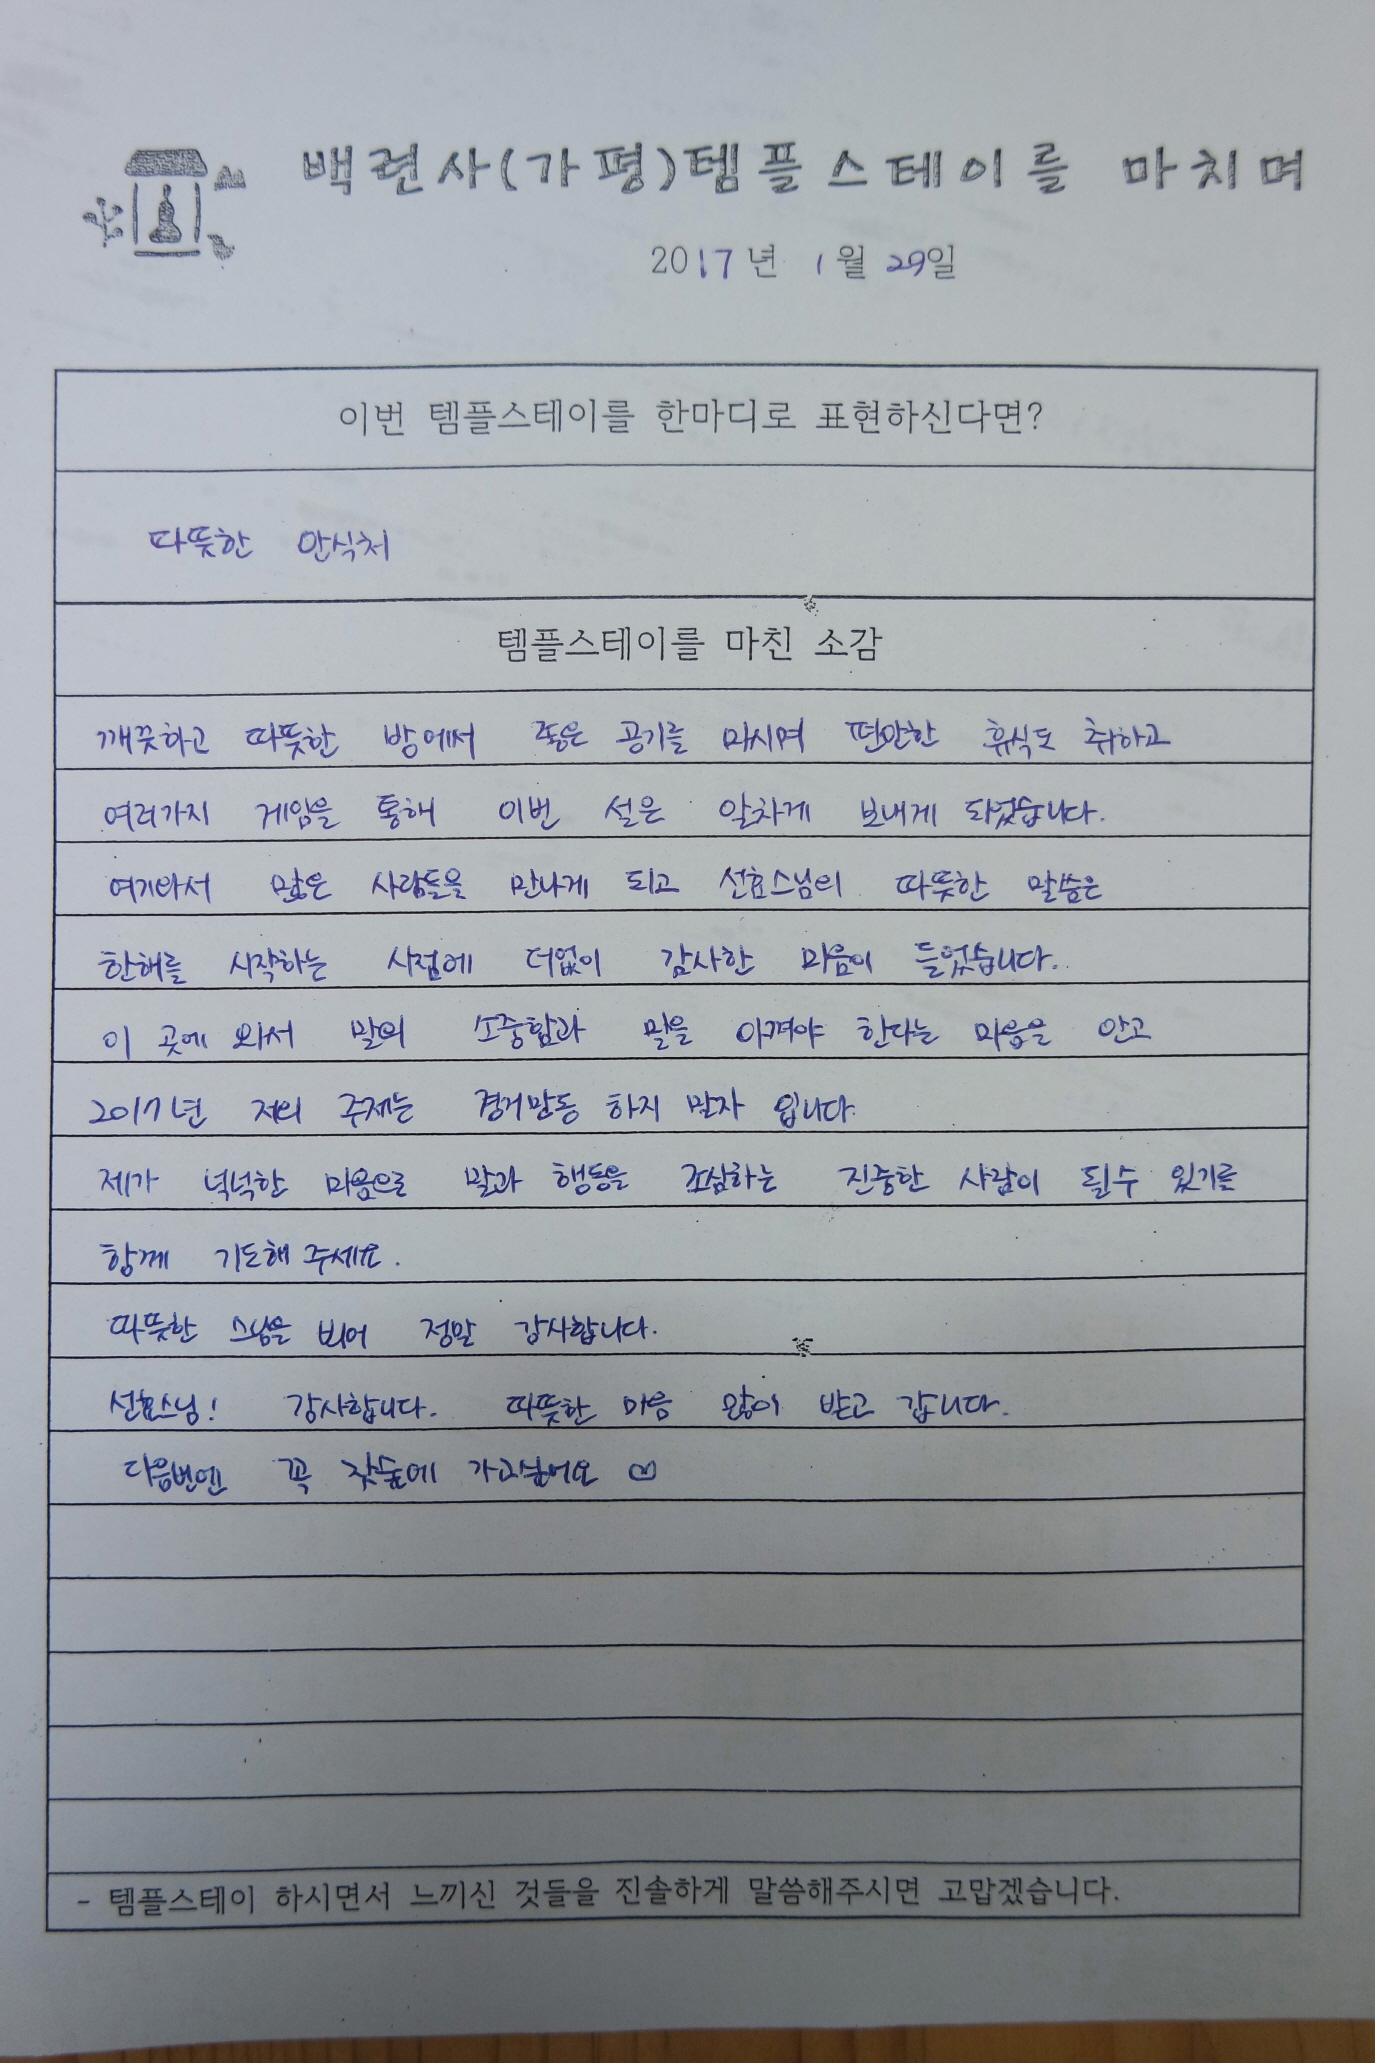 백련사(가평)템플스테이를 마치며
2017년 1월 29일
이번 템플스테이를 한마디로 표현하신다면?
따뜻한 안식처
템플스테이를 마친 소감
깨끗하고 따뜻한 방에서 좋은 공기를 마시며 편안한 휴식도 취하고
여러가지 게임을 통해 이번 설은 알차게 보내게 되었습니다.
여기와서 많은 사람들을 만나게 되고 선효스님의 따뜻한 말씀은
한해를 시작하는 시점에 더없이 감사한 마음이 들었습니다.
이 곳에 와서 말의 소중함과 말을 아껴야 한다는 마음을 안고
2017년 저의 주제는 경거망동 하지 말자 입니다.
제가 넉넉한 마음으로 말과 행동을 조심하는 진중한 사람이 될수 있기를
함께 기도해 주세요.
따뜻한 스님을 뵈어 정말 감사합니다.
선효스님! 감사합니다. 따뜻한 마음 많이 받고 갑니다.
다음번엔 꼭 잣숲에 가고싶어요 ♡
- 템플스테이 하시면서 느끼신 것들을 진솔하게 말씀해주시면 고맙겠습니다.